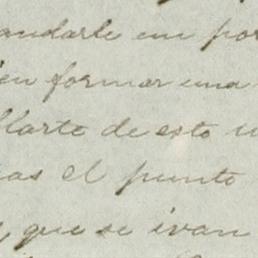 andarle un por
en formar una
llarte de esto u
as el punto
, que se ivan